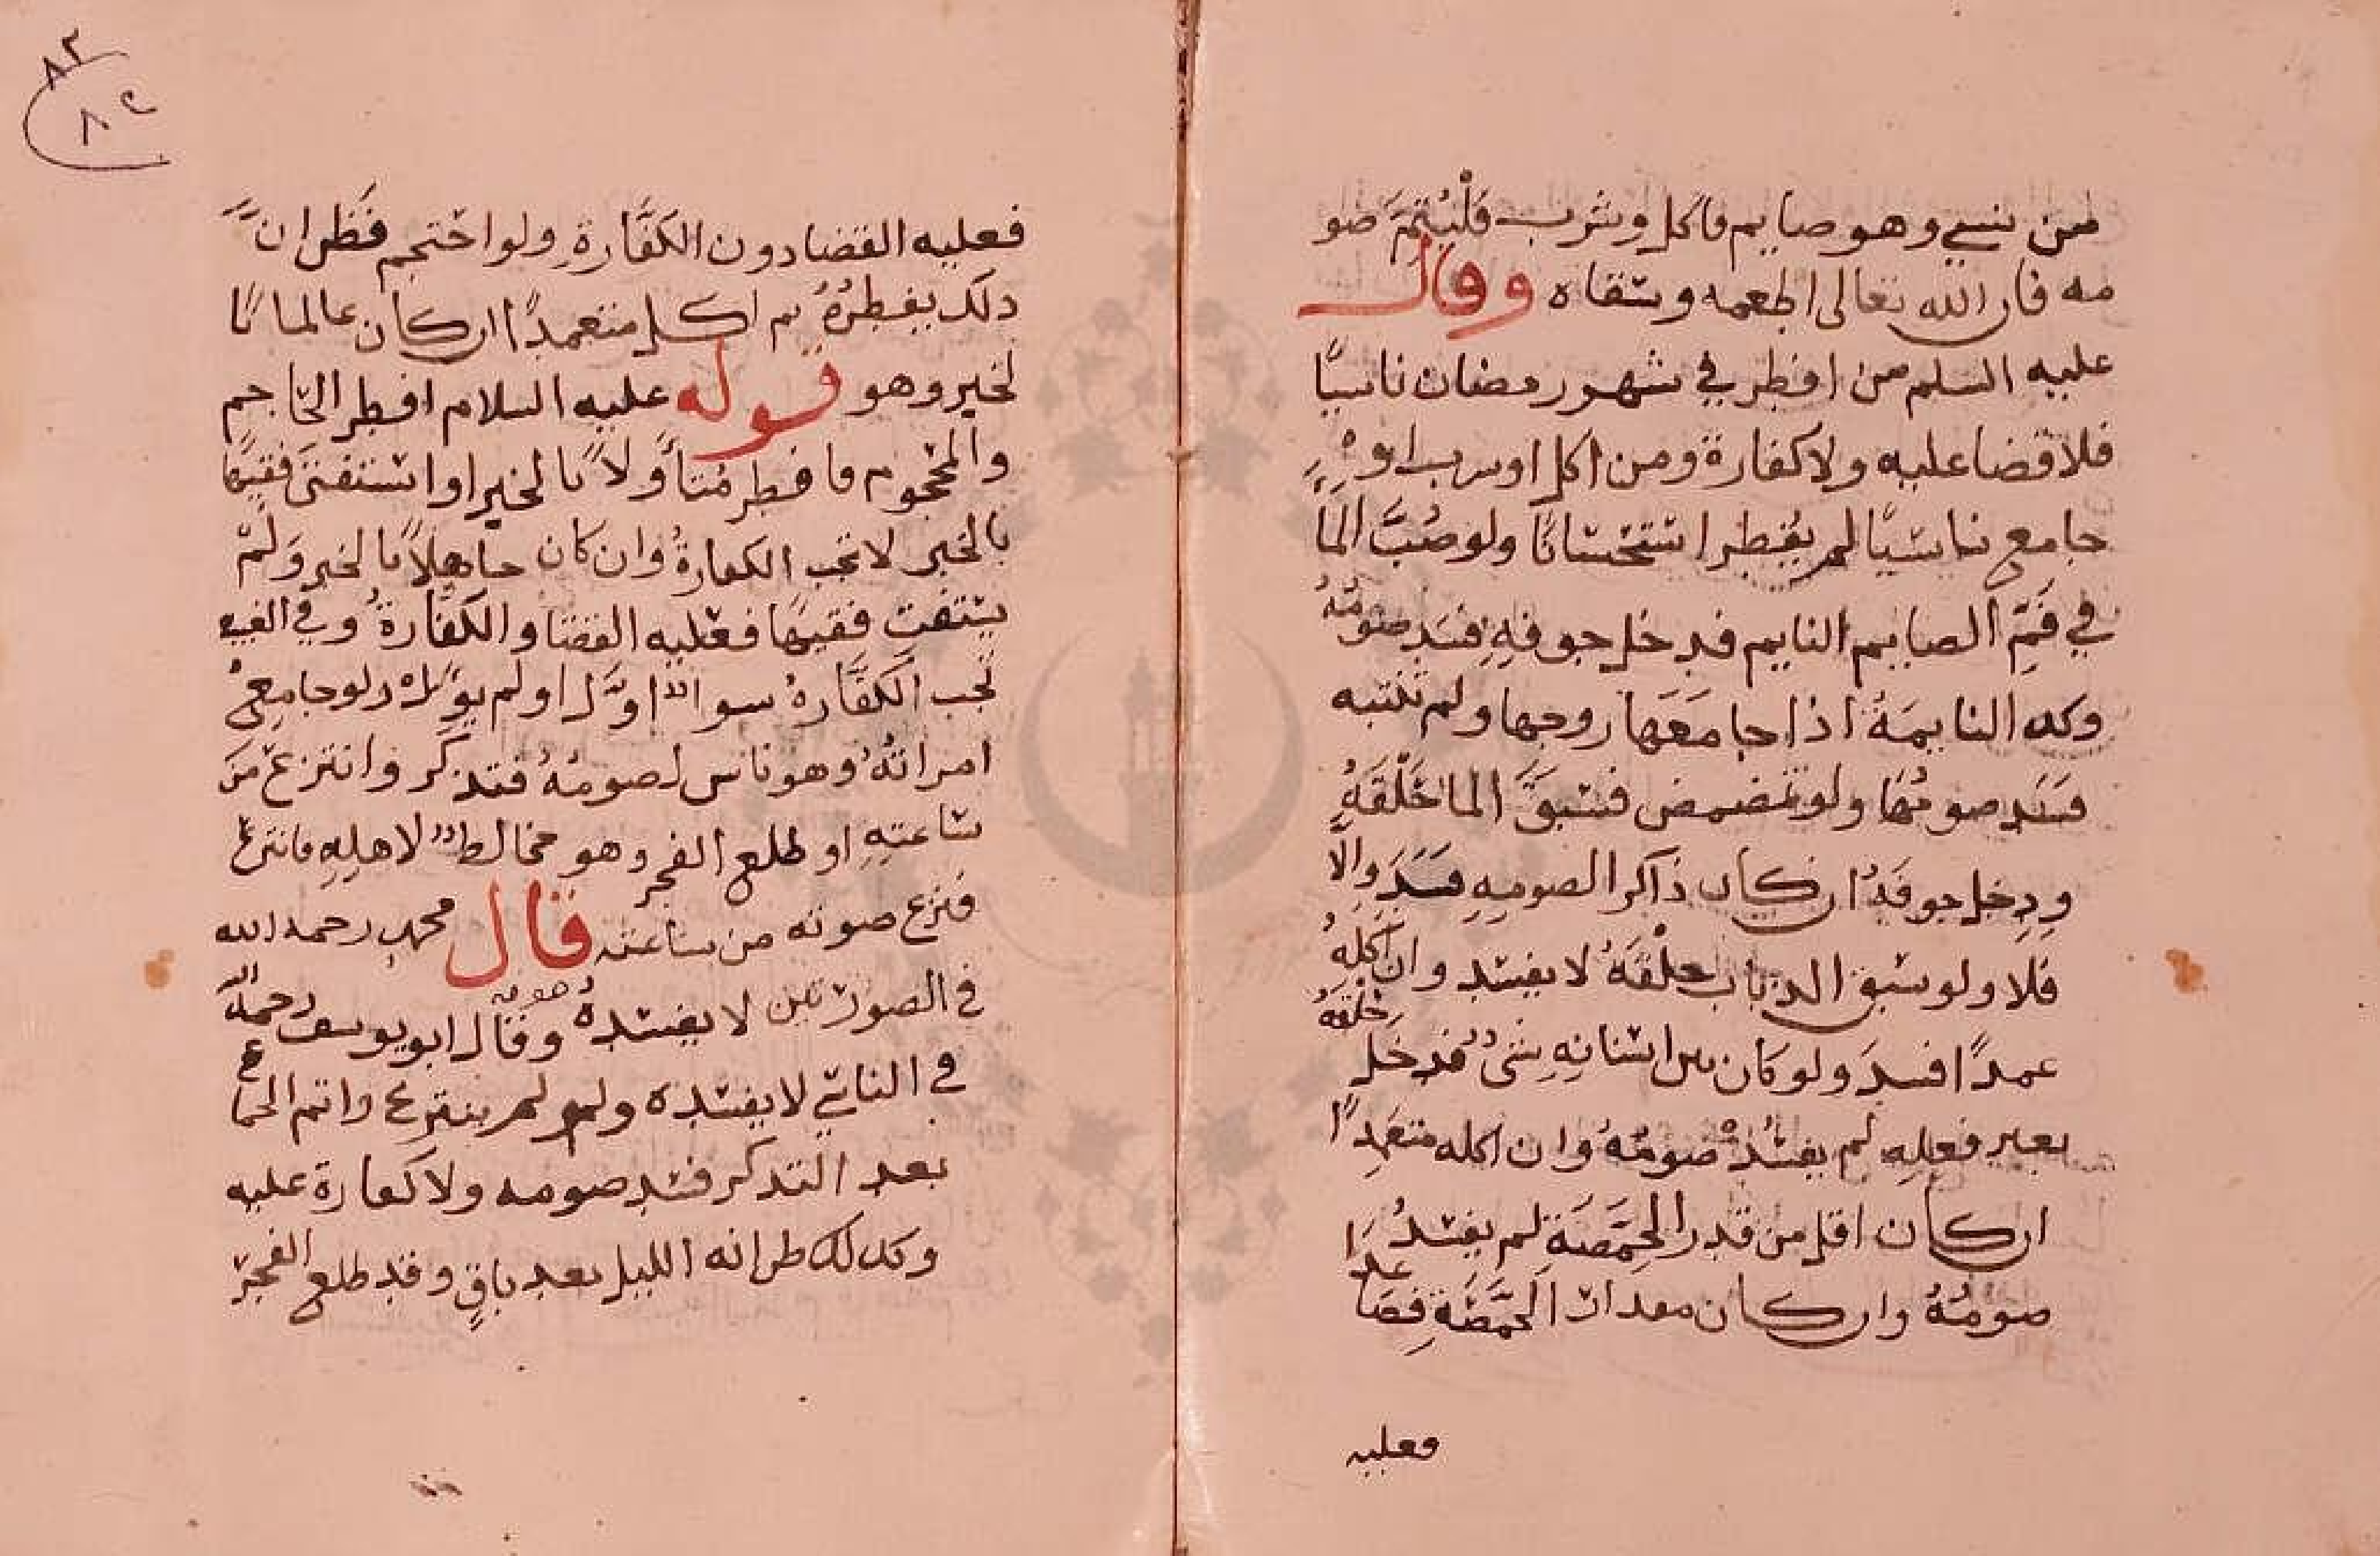 من نسي وهو صايم فاكل وشرب فَلْيُتِمَّ صو
مه فان الله تعالى اطعمه وسقاه وقال
عليه السلم من افطر في شهر رمضان ناسيًا
فلا قضا عليه ولا كفارة ومن اكل او شرب او
جامع ناسيًا لم يفطر استحسانًا ولو صُبَّ الما
في فَمِّ الصايم النايم فدخل جوفهِ فسَد صومُهُ
وكذه النايمَةُ اذا جامَعَها زوجها ولم تنتبه
فسَد صومُها ولو تمضمض فسَبقَ الما حَلْقَهُ
ودخل جوفَهُ ان كان ذاكر الصومِهِ فسَدَ والّا
فلا ولو سبق الذباب حلْقَهُ لا يفسد وان اكلهُ
عمدًا افسدَ ولو كان بين اسنانِهِ شىٌ فدخل
حَلْقهُ
بغير فعلِهِ لم يفسُدْ صومُهُ وان اكله متعمدًا
ان كان اقل من قدر الحِمَّصَةِ لم يفسُدُ
صومُهُ وان كان مقدار الحِمَّصَةِ فصَاعدًا
فعليه
٨٢
٨٢
فعليه القضا دون الكَفَّارةِ ولو احتجم فَظَن انَّ
ذلك يفطرُهُ ثم اكل متعمدًا ان كان عالما با
لخبر وهو قوله عليه السلام افطر الحَاجم
والمحجوم فافطر مُتأَولاً بالخبر او استفتىَ فقيهًا
بالخبر لا تجب الكفارةُ وان كان جاهِلاً بالخبر وَلَمْ
يستفتِ فقيهًا فعليه القضا والكَفَّارةُ وفي الغيبه
تجب الكَفَّارةُ سوآءٌ اوَّل او لم يوَّل ولو جامع
امراتهُ وهو ناسٍ لصومُهُ فتذكر وانتزع من
سَاعتِهِ او طلع الفجر وهو مخالطٌ لاهلِهِ فانتزع
فنزع صونه من ساعته قال محمد رحمه الله
في الصورتين لا يفسدهُ صومه وقال ابو يوسف رحمهُ الله
في الناسي لا يفسده ولو لم ينتزع واتم الجماع
بعد التذكر فسَد صومه ولا كفارة عليه
وكذلك ظن انه الليل بعد باقٍ وقد طلع الفجر